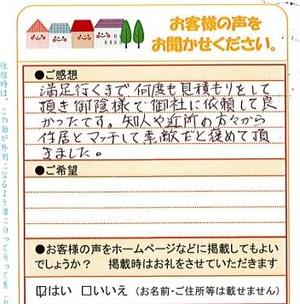 お客様の声を
お聞かせください。
●ご感想
満足行くまで何度も見積もりをして
頂き御陰様で御社に依頼して良
かったです。知人や近所の方々から
住居とマッチして素敵だと褒めて頂
きました。
●ご希望
●お客様の声をホームページなどに掲載してもよい
でしょうか? 掲載時はお礼をさせていただきます
☑はい □いいえ (お名前・ご住所等は載せません)